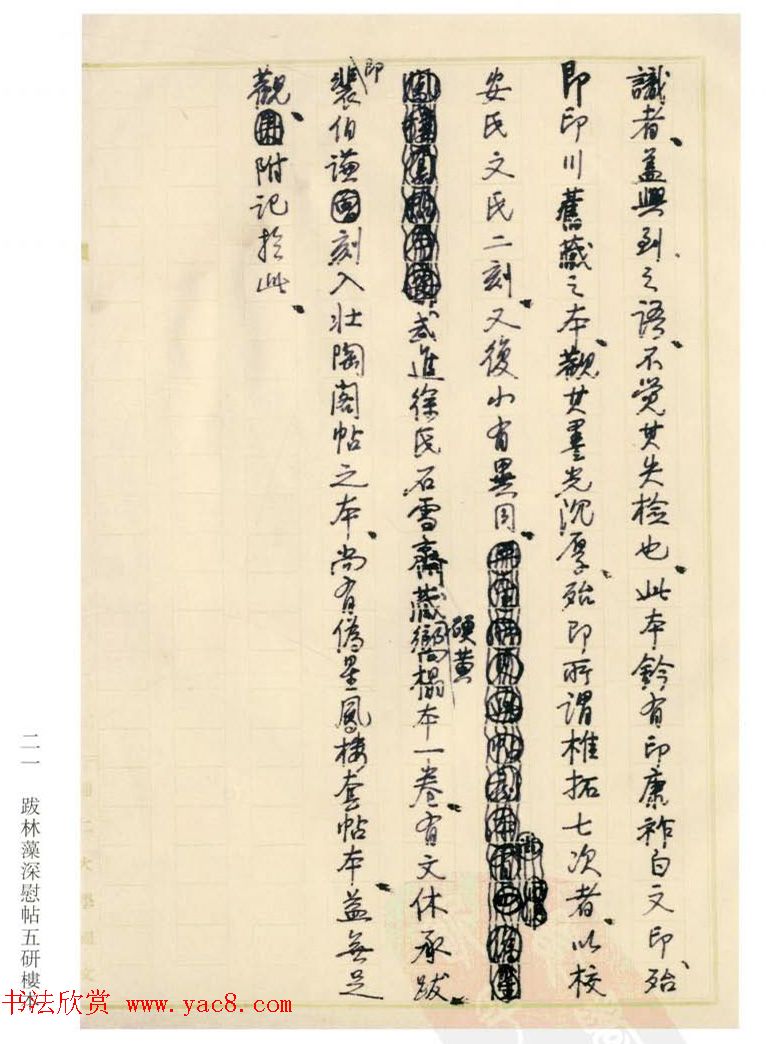 識者、蓋興到之語、不覺其失檢也、此本鈐有印康祚白文印、殆
即印川舊藏之本、觀其墨光沉厚、殆即所謂椎拓七次者、以校
安氏文氏二刻、又復小有異同、
硬黃
武進徐氏石雪齋藏嚮搨本一卷、有文休承跋
即
裴伯謙刻入壯陶閣帖之本、尚有偽星鳳樓套帖本、益無足
觀、附記於此、
二一 跋林藻深慰帖五研樓本
书法欣赏 www.yac8.com